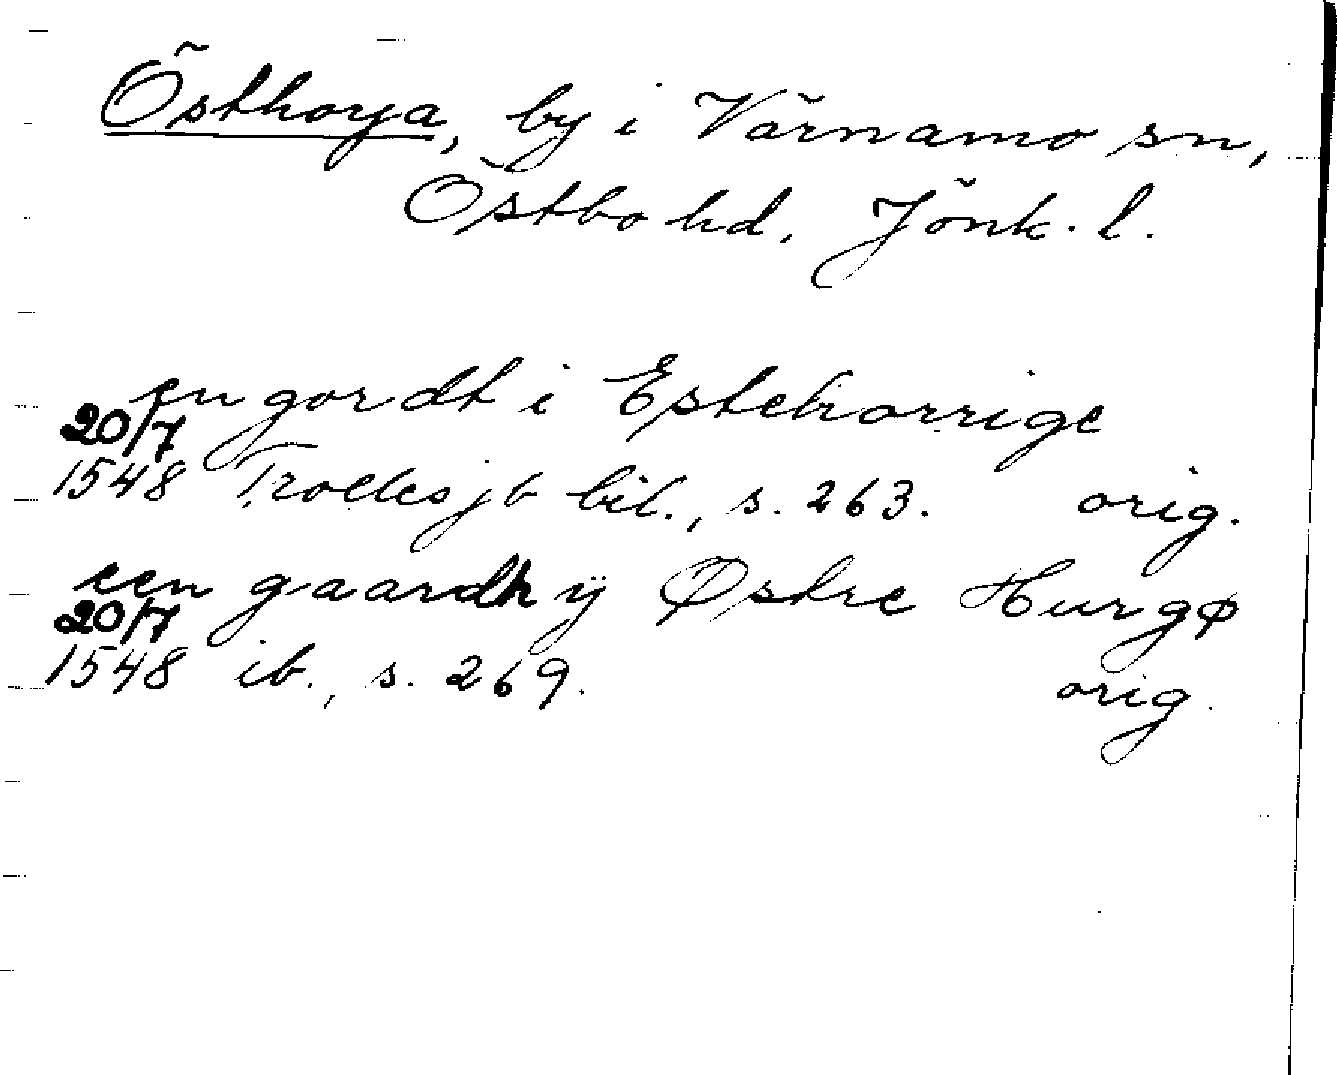 Östhorja, by i Värnamo sn,
Östbo hd, Jönk. l.
en gordt i Estehorrige
20/7
1548 Trolles jb bil., s. 263. orig.
een gaardh ÿ Østre Hurgø
20/7
1548 ib., s. 269. orig.